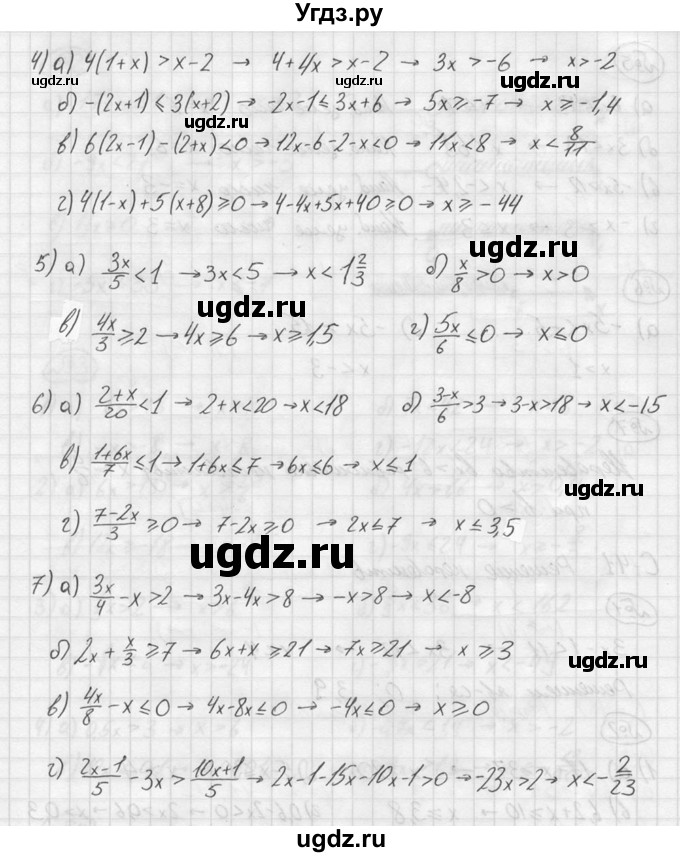 Угдз.ру
4) а) 4(1+x) > x-2 → 4+4x > x-2 → 3x > -6 → x > -2
ugdz.ru ugdz.ru ugdz.ru
б) -(2x+1) ⩽ 3(x+2) → -2x-1 ⩽ 3x+6 → 5x ⩾ -7 → x ⩾ -1,4
ugdz.ru
в) 6(2x-1) - (2+x) < 0 → 12x-6-2-x < 0 → 11x < 8 → x < 8/11
г) 4(1-x) + 5(x+8) ⩾ 0 → 4-4x+5x+40 ⩾ 0 → x ⩾ -44
5) а) 3x/5 < 1 → 3x < 5 → x < 1 2/3 б) x/8 > 0 → x > 0
ugdz.ru ugdz.ru
в) 4x/3 ⩾ 2 → 4x ⩾ 6 → x ⩾ 1,5 г) 5x/6 ⩽ 0 → x ⩽ 0
6) а) 2+x/20 < 1 → 2+x < 20 → x < 18 б) 3-x/6 > 3 → 3-x > 18 → x < -15
в) 1+6x/7 ⩽ 1 → 1+6x ⩽ 7 → 6x ⩽ 6 → x ⩽ 1
ugdz.ru
г) 7-2x/3 ⩾ 0 → 7-2x ⩾ 0 → 2x ⩽ 7 → x ⩽ 3,5
ugdz.ru
7) а) 3x/4 - x > 2 → 3x-4x > 8 → -x > 8 → x < -8
б) 2x + x/3 ⩾ 7 → 6x+x ⩾ 21 → 7x ⩾ 21 → x ⩾ 3
ugdz.ru
в) 4x/8 - x ⩽ 0 → 4x-8x ⩽ 0 → -4x ⩽ 0 → x ⩾ 0
г) 2x-1/5 - 3x > 10x+1/5 → 2x-1-15x-10x-1 > 0 → -23x > 2 → x < -2/23
ugdz.ru ugdz.ru ugdz.ru
ugdz.ru